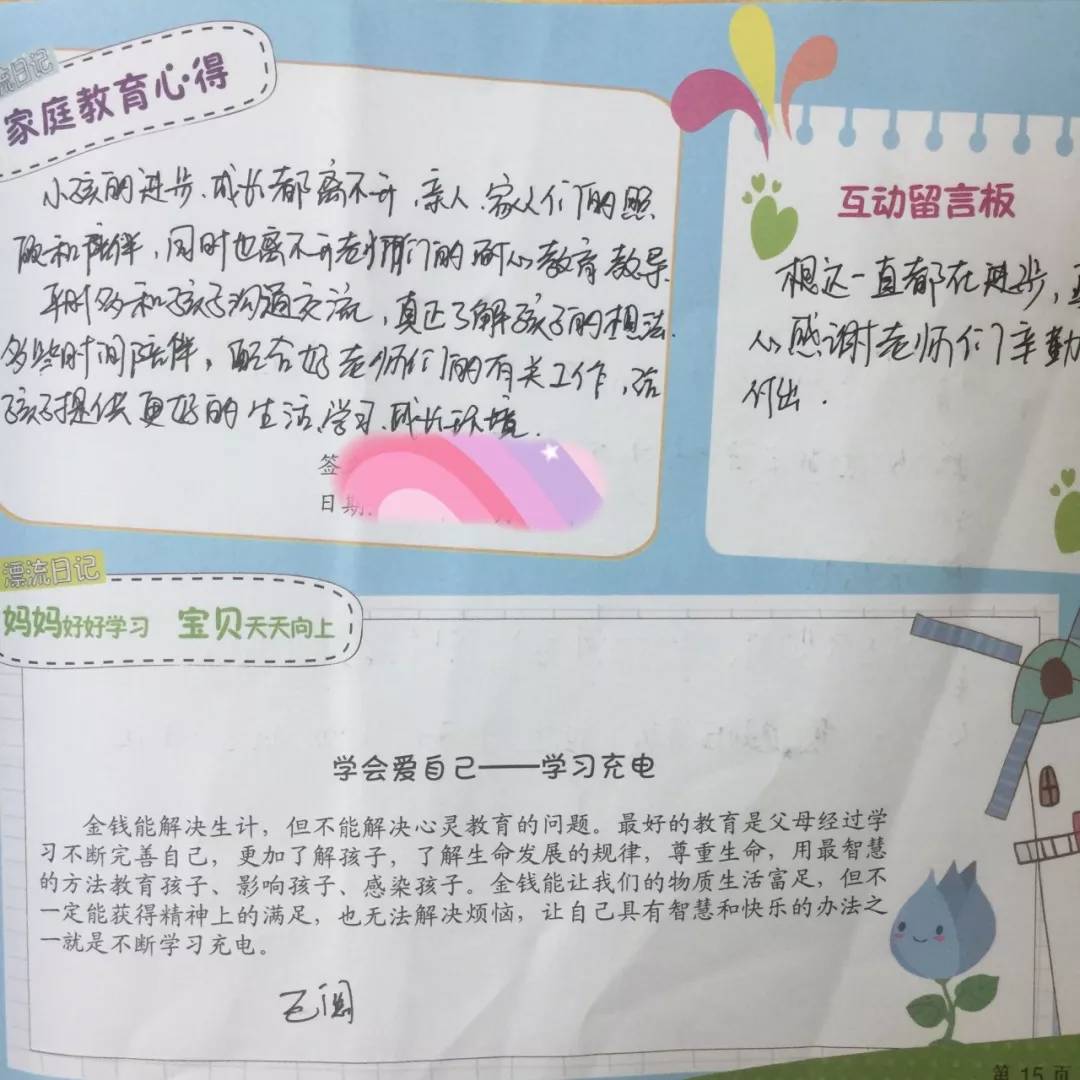 流日记
家庭教育心得
小孩的进步、成长都离不开亲人、家人们的照
顾和陪伴，同时也离不开老师们的耐心教育教导.
平时多和孩子沟通交流，真正了解孩子的想法.
多些时间陪伴，配合好老师们的有关工作，给
孩子提供更好的生活、学习、成长环境.
签
日期
互动留言板
想这一直都在进步，
心感谢老师们辛勤
付出.
漂流日记
妈妈好好学习 宝贝天天向上
学会爱自己——学习充电
金钱能解决生计，但不能解决心灵教育的问题。最好的教育是父母经过学
习不断完善自己，更加了解孩子，了解生命发展的规律，尊重生命，用最智慧
的方法教育孩子、影响孩子、感染孩子。金钱能让我们的物质生活富足，但不
一定能获得精神上的满足，也无法解决烦恼，让自己具有智慧和快乐的办法之
一就是不断学习充电。
已阅
第 15 页